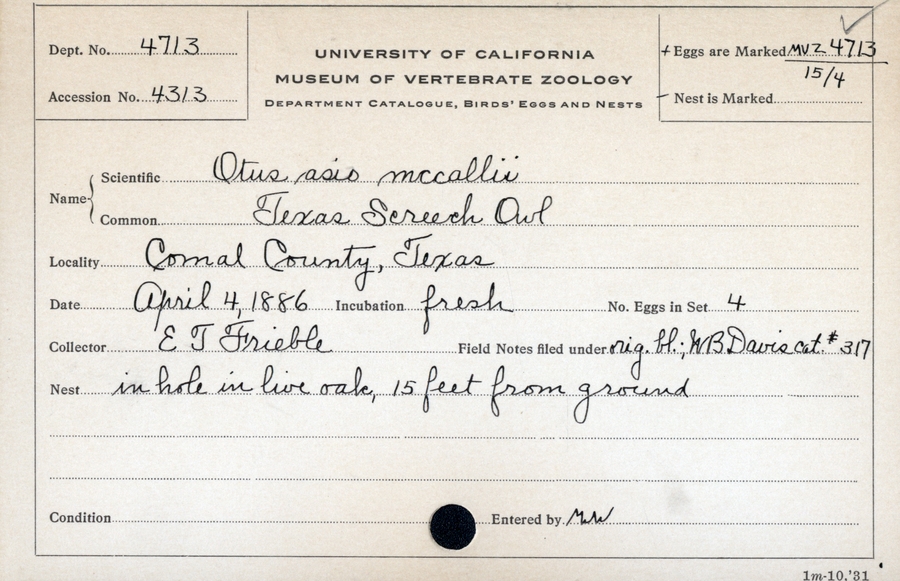 Dept. No. 4713
Accession No. 4313
UNIVERSITY OF CALIFORNIA
MUSEUM OF VERTEBRATE ZOOLOGY
DEPARTMENT CATALOGUE, BIRDS' EGGS AND NESTS
+ Eggs are Marked MVZ 4713
15/4
- Nest is Marked
Name
Scientific Otus asio mccallii
Common Texas Screech Owl
Locality Comal County, Texas
Date April 4, 1886 Incubation fresh No. Eggs in Set 4
Collector E T Frieble Field Notes filed under orig. bl.; WB Davis cat. # 317
Nest in hole in live oak, 15 feet from ground
Condition Entered by
1m-10,'31